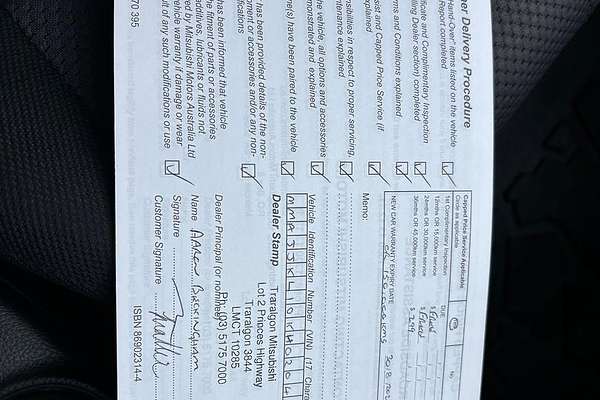 er Delivery Procedure
Hand-Over" items listed on the vehicle
Report completed
ificate and Complimentary Inspection
lling Dealer section) completed
rms and Conditions explained
sist and Capped Price Service (if
xplained
nsibilities in respect to proper servicing,
ntenance explained
the vehicle, all options and accessories
monstrated and explained
ne(s) have been paired to the vehicle
has been provided details of the non-
oment or accessories and/or any non-
ifications
has been informed that vehicle
the fitment of parts or accessories
additives, lubricants or fluids not
ed by Mitsubishi Motors Australia Ltd
vehicle warranty if damage or wear
ult of any such modifications or use
70 395
Capped Price Service Applicable
Circle as applicable
No
DUE
1st Complimentary Inspection
12mths OR 15,000km service
24mths OR 30,000km service
36mths OR 45,000km service
$ 299
NEW CAR WARRANTY EXPIRY DATE
OR
KMS
Memo:
Vehicle Identification Number (VIN) (17 Chara
Dealer Stamp
Traralgon Mitsubishi
Lot 2 Princes Highway
Traralgon 3844
LMCT 10285
Ph (03) 5175 7000
Dealer Principal (or nominee)
Name
Signature
Customer Signature
ISBN 86902314-4